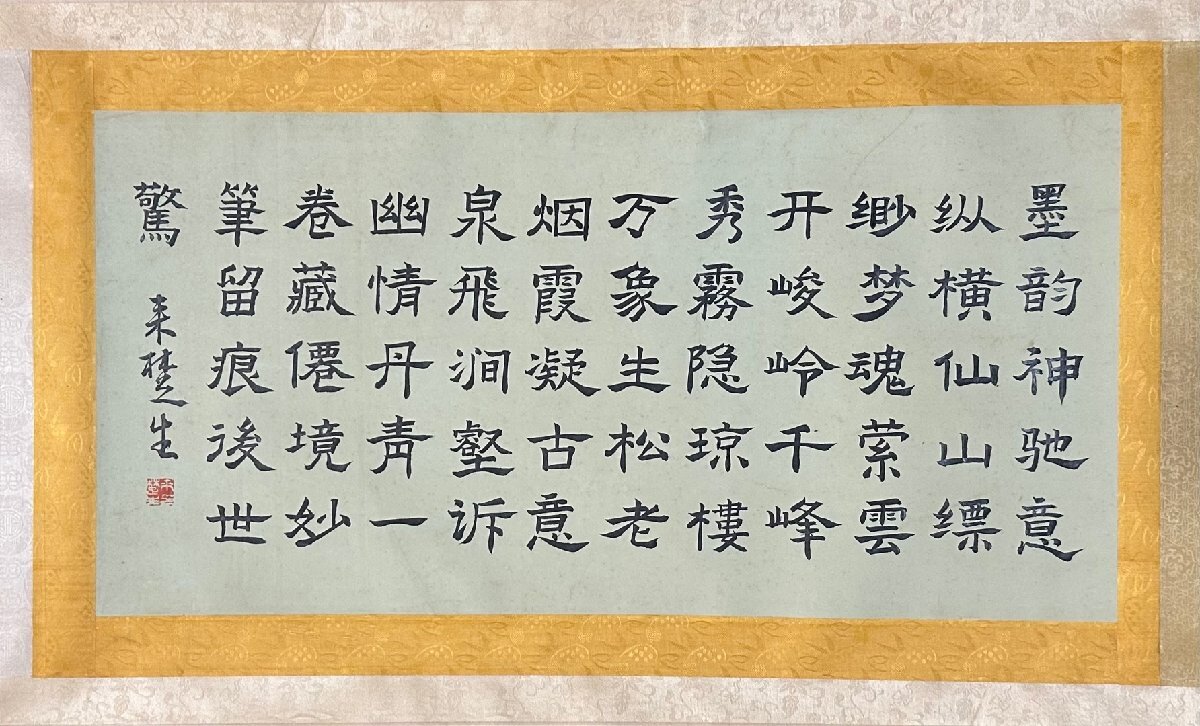 墨韵神驰意
纵横仙山缥
缈梦魂萦雲
开峻岭千峰
秀霧隐琼樓
万象生松老
烟霞凝古意
泉飛涧壑诉
幽情丹青一
卷藏僊境妙
筆留痕後世
驚
来楚生